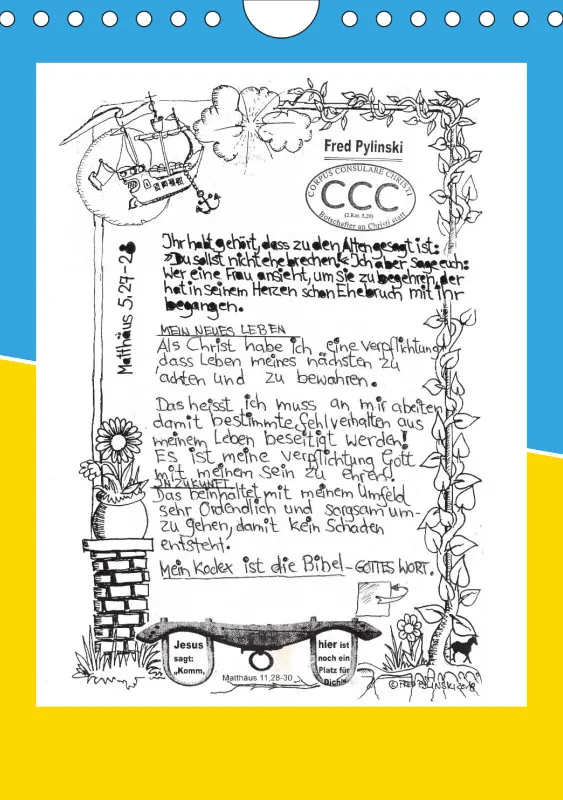 Fred Pylinski
CORPUS CONSULARE CHRISTI
CCC
(2.Kor. 5,20)
Botschafter an Christi statt
Matthäus 5,27-28
Ihr habt gehört, dass zu den Alten gesagt ist:
»Du sollst nicht ehebrechen!« Ich aber sage euch:
Wer eine Frau ansieht, um sie zu begehren, der
hat in seinem Herzen schon Ehebruch mit ihr
begangen.
MEIN NEUES LEBEN
Als Christ habe ich eine Verpflichtung
dass Leben meines nächsten zu
achten und zu bewahren.
Das heisst ich muss an mir abeiten
damit bestimmte fehlverhalten aus
meinem Leben beseitigt werden!
ES ist meine Verpflichtung Gott
mit meinem Sein zu ehren!
IN ZUKUNFT
Das beinhaltet mit meinem Umfeld
sehr Ordendlich und sorgsam um-
zu gehen, damit kein Schaden
entsteht.
Mein Kodex ist die Bibel - GOTTES WORT.
Jesus
sagt:
„Komm,
hier ist
noch ein
Platz für
Dich!"
Matthäus 11,28-30
©FRED PYLINSKI 2018